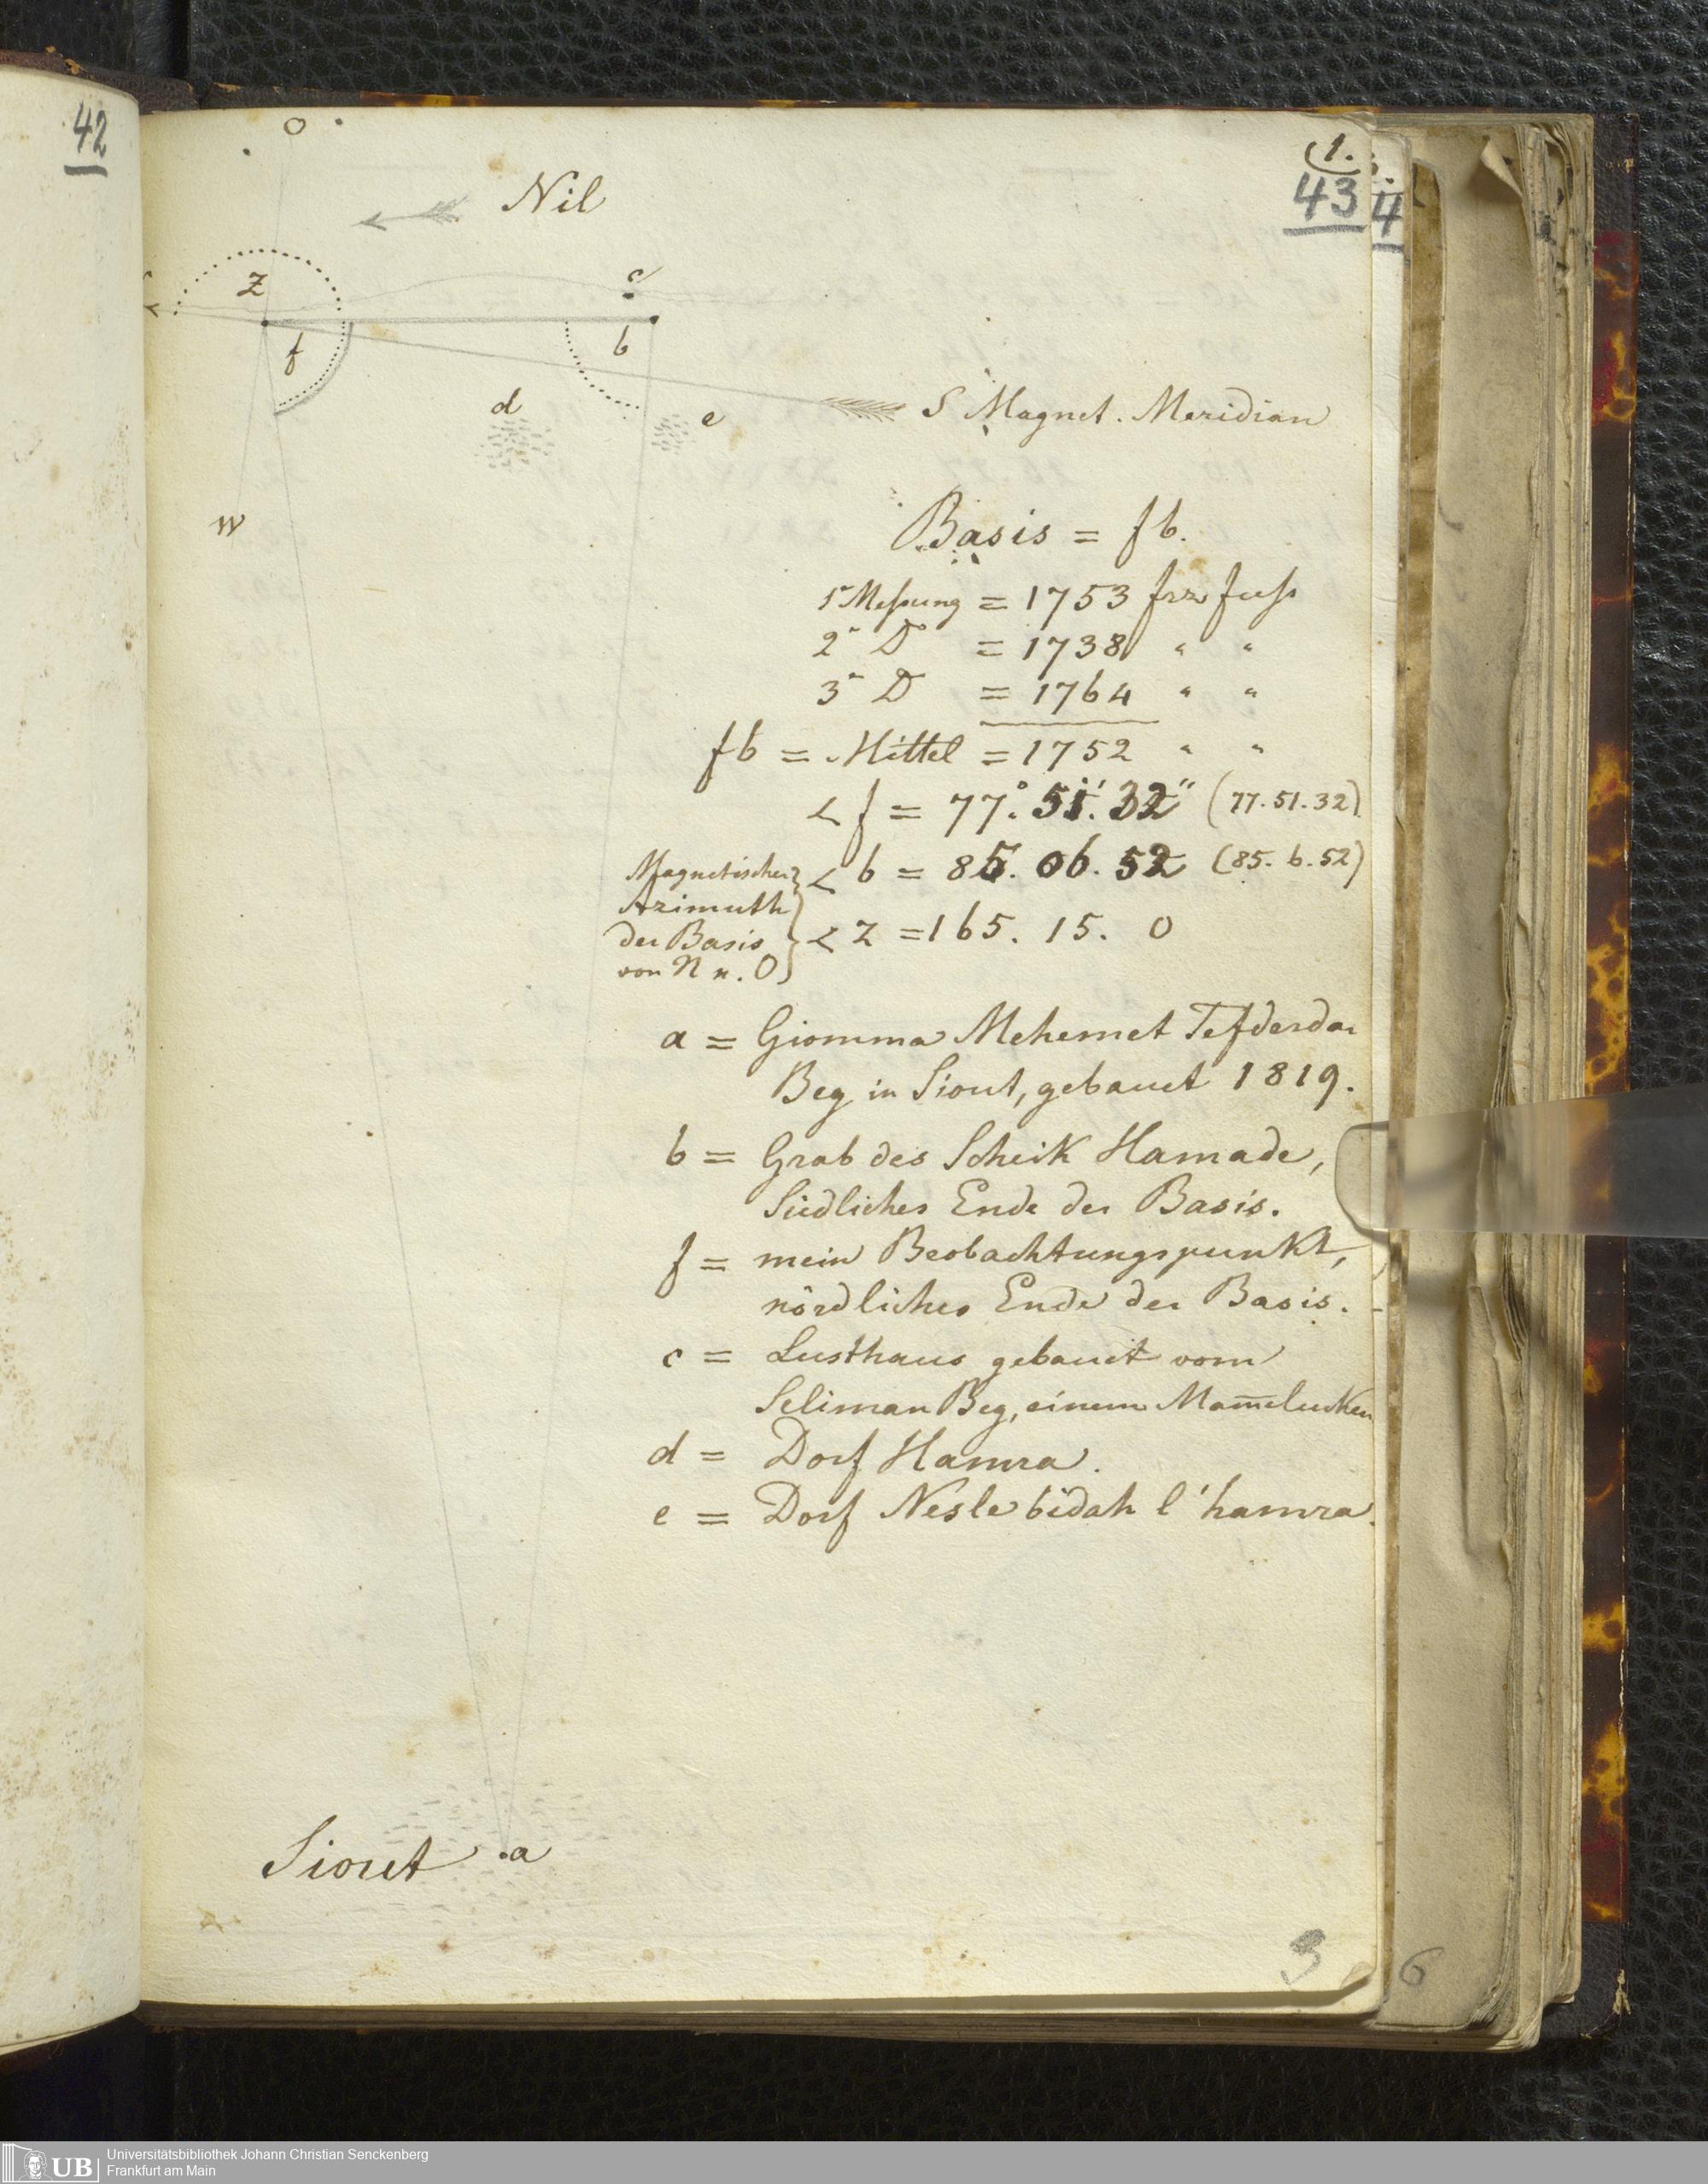 42
O
(1.
43
4
Nil
Z
c
f
b
d
e
S Magnet. Meridian
W
Basis = fb.
1r Messung = 1753 frz fuss
2r Do = 1738 " "
3r D = 1764 " "
fb = Mittel = 1752 " "
< f = 77°. 51'. 32" (77.51.32)
Magnetischer < b = 85. 06. 52 (85. 6. 52)
Azimuth
der Basis < z = 165. 15. 0
von N n. O
a = Giomma Mehemet Tefderdar
Beg in Siout, gebauet 1819.
b = Grab des Scheik Hamade,
Südliches Ende der Basis.
f = mein Beobachtungspunkt,
nördliches Ende der Basis.
c = Lusthaus gebauet vom
Seliman Beg, einem Mam̄elucken
d = Dorf Hamra.
e = Dorf Nesle bidah l'hamra.
Siout .a
3
6
UB Universitätsbibliothek Johann Christian Senckenberg
Frankfurt am Main